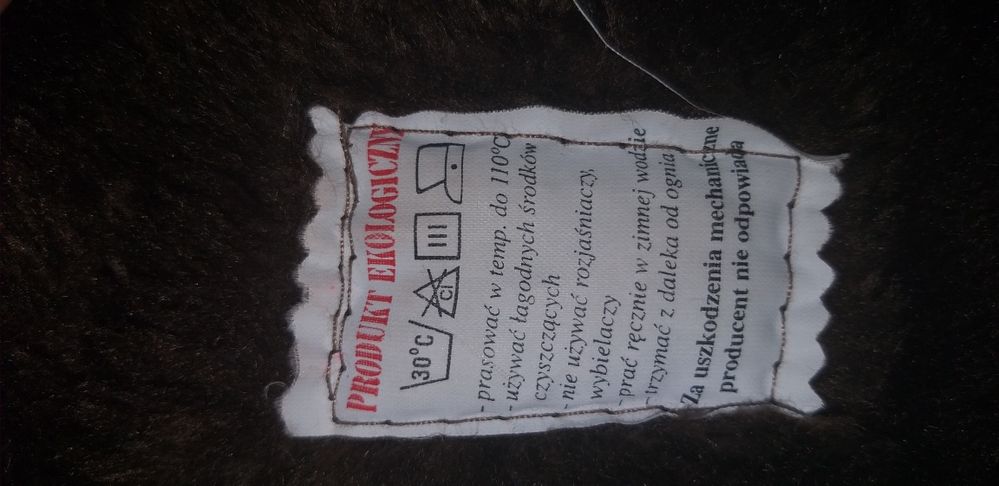 PRODUKT EKOLOGICZNY
30°C
CL
- prasować w temp. do 110°C
- używać łagodnych środków
czyszczących
- nie używać rozjaśniaczy,
wybielaczy
- prać ręcznie w zimnej wodzie
- trzymać z daleka od ognia
Za uszkodzenia mechaniczne
producent nie odpowiada